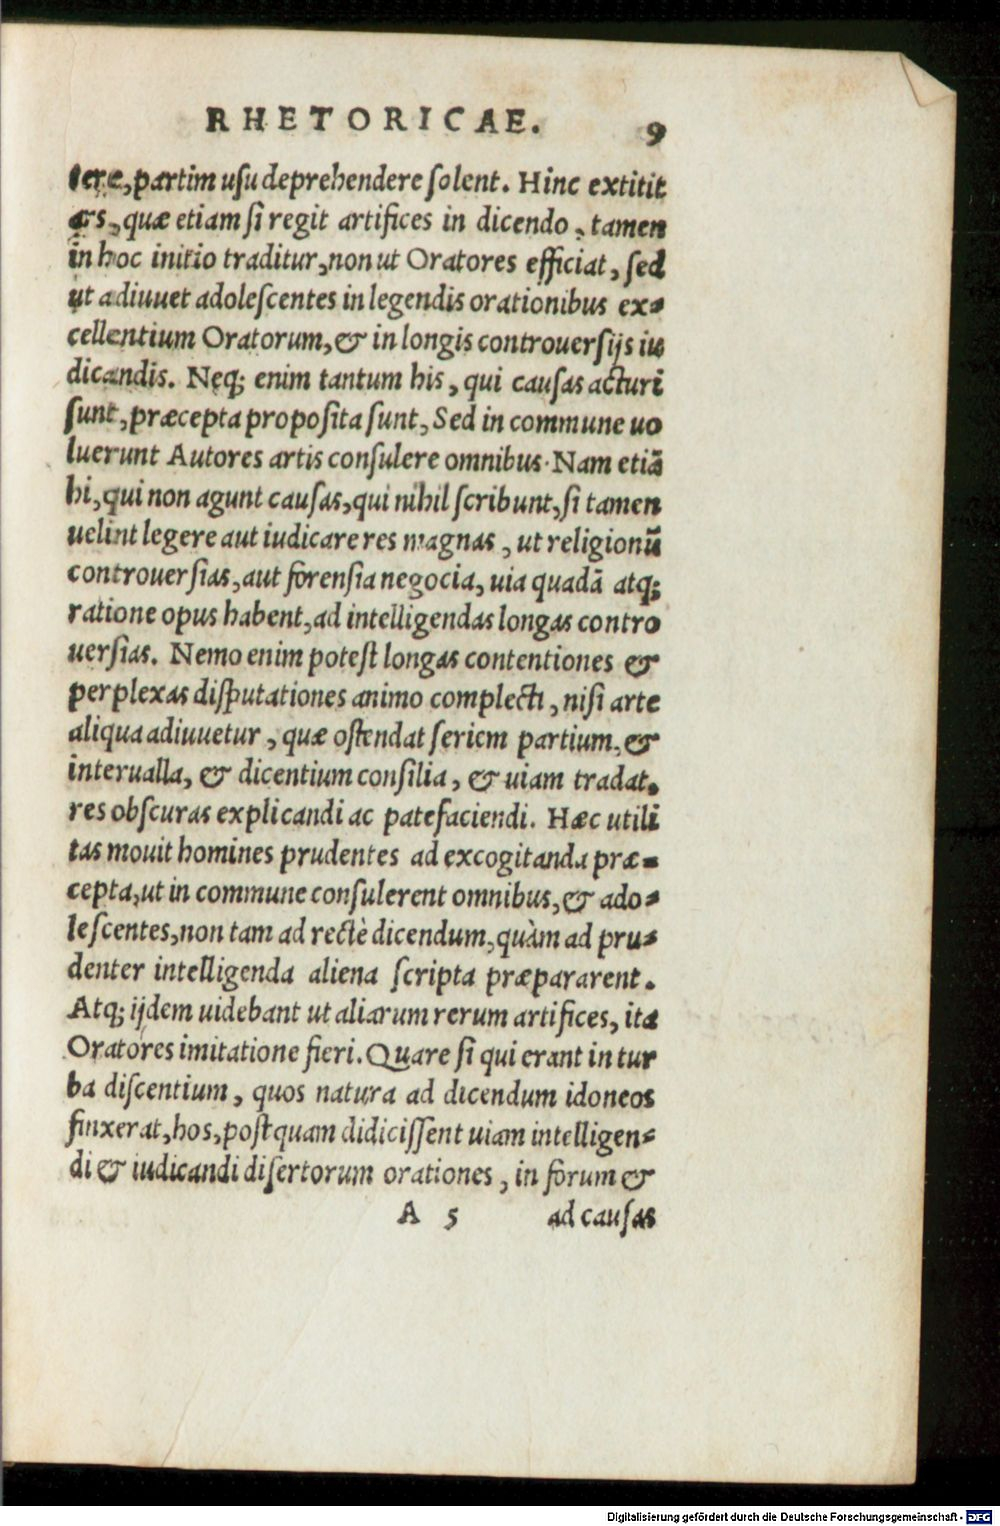 RHETORICAE. 9
lere, partim uſu deprehendere ſolent. Hinc extitit
ars, quæ etiam ſi regit artifices in dicendo, tamen
in hoc initio traditur, non ut Oratores efficiat, ſed
ut adiuuet adoleſcentes in legendis orationibus ex-
cellentium Oratorum, & in longis controuerſijs iu
dicandis. Neq; enim tantum his, qui cauſas acturi
ſunt, præcepta propoſita ſunt, Sed in commune uo
luerunt Autores artis conſulere omnibus. Nam etiã
hi, qui non agunt cauſas, qui nihil ſcribunt, ſi tamen
uelint legere aut iudicare res magnas, ut religionũ
controuerſias, aut forenſia negocia, uia quadã atq;
ratione opus habent, ad intelligendas longas contro
uerſias. Nemo enim poteſt longas contentiones &
perplexas diſputationes animo complecti, niſi arte
aliqua adiuuetur, quæ oſtendat ſeriem partium, &
interualla, & dicentium conſilia, & uiam tradat,
res obſcuras explicandi ac patefaciendi. Hæc utili
tas mouit homines prudentes ad excogitanda præ-
cepta, ut in commune conſulerent omnibus, & ado-
leſcentes, non tam ad rectè dicendum, quàm ad pru-
denter intelligenda aliena ſcripta præpararent.
Atq; ijdem uidebant ut aliarum rerum artifices, ita
Oratores imitatione fieri. Quare ſi qui erant in tur
ba diſcentium, quos natura ad dicendum idoneos
finxerat, hos, poſtquam didiciſſent uiam intelligen-
di & iudicandi diſertorum orationes, in forum &
A 5 ad cauſas
Digitalisierung gefördert durch die Deutsche Forschungsgemeinschaft - DFG